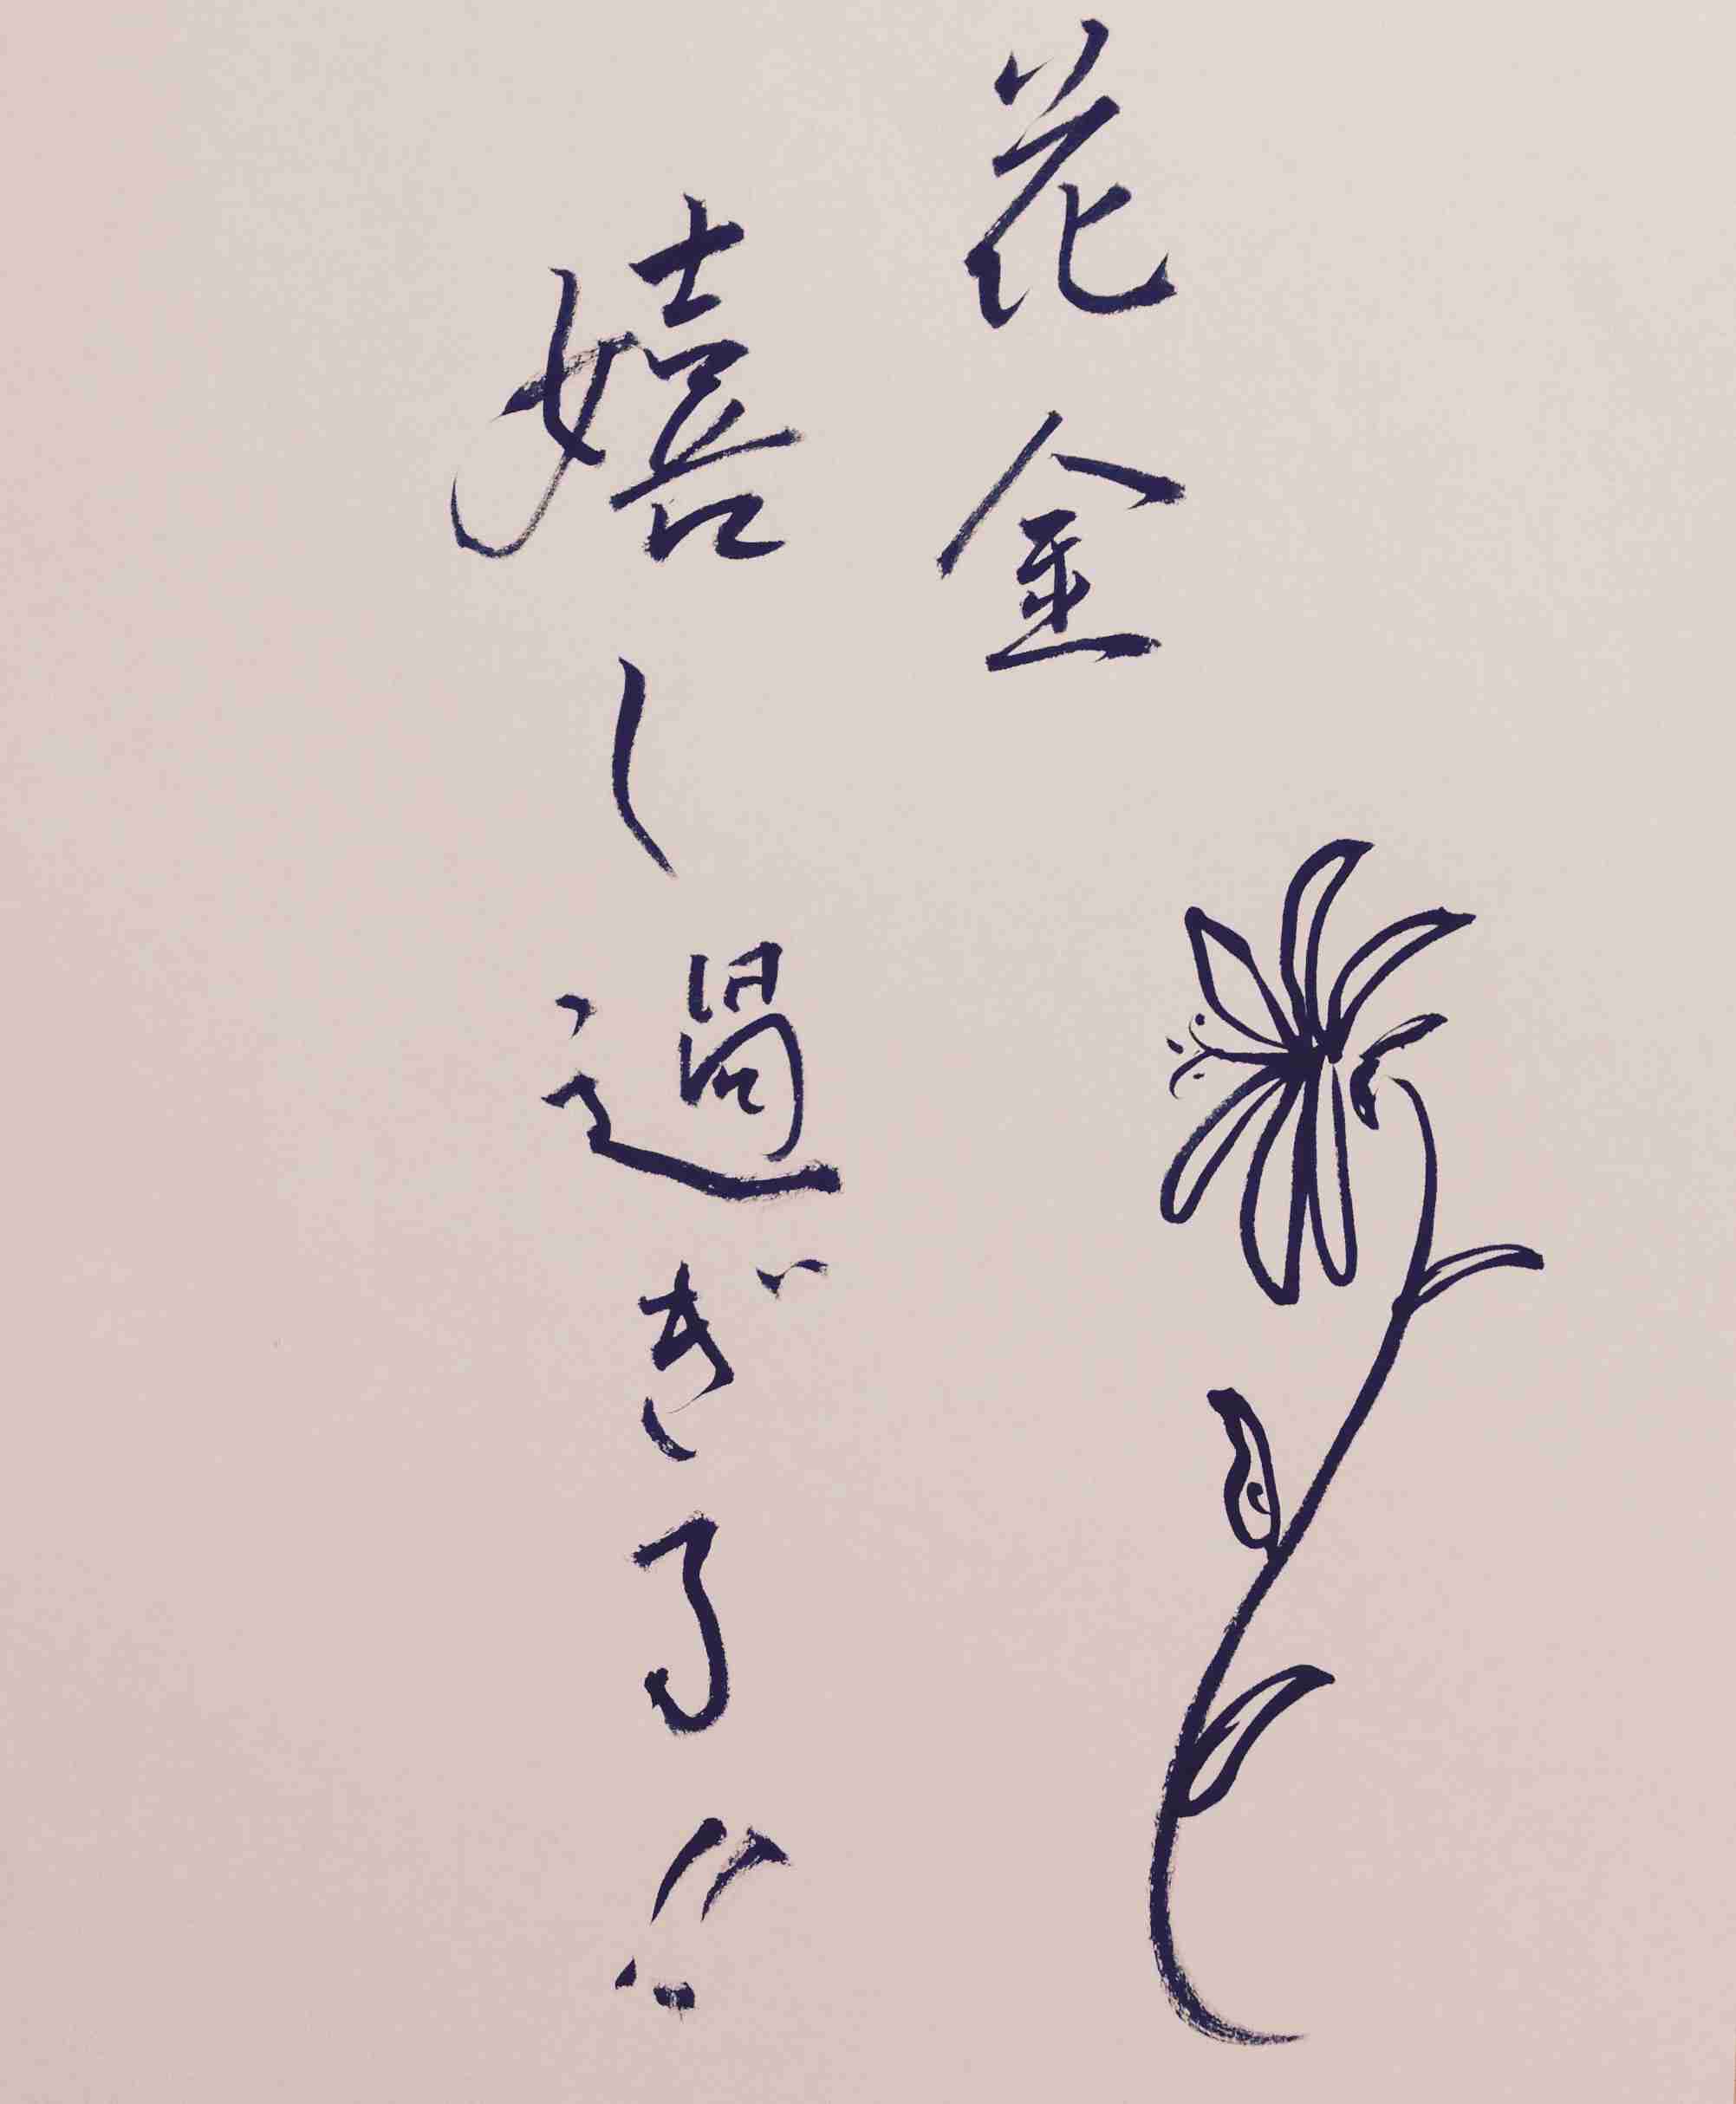 花金
嬉し過ぎる!!